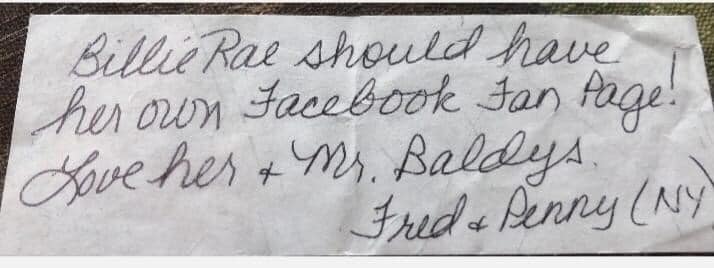 Billie Rae should have
her own Facebook Fan Page!
Love her + Mr. Baldys.
Fred + Penny (NY)